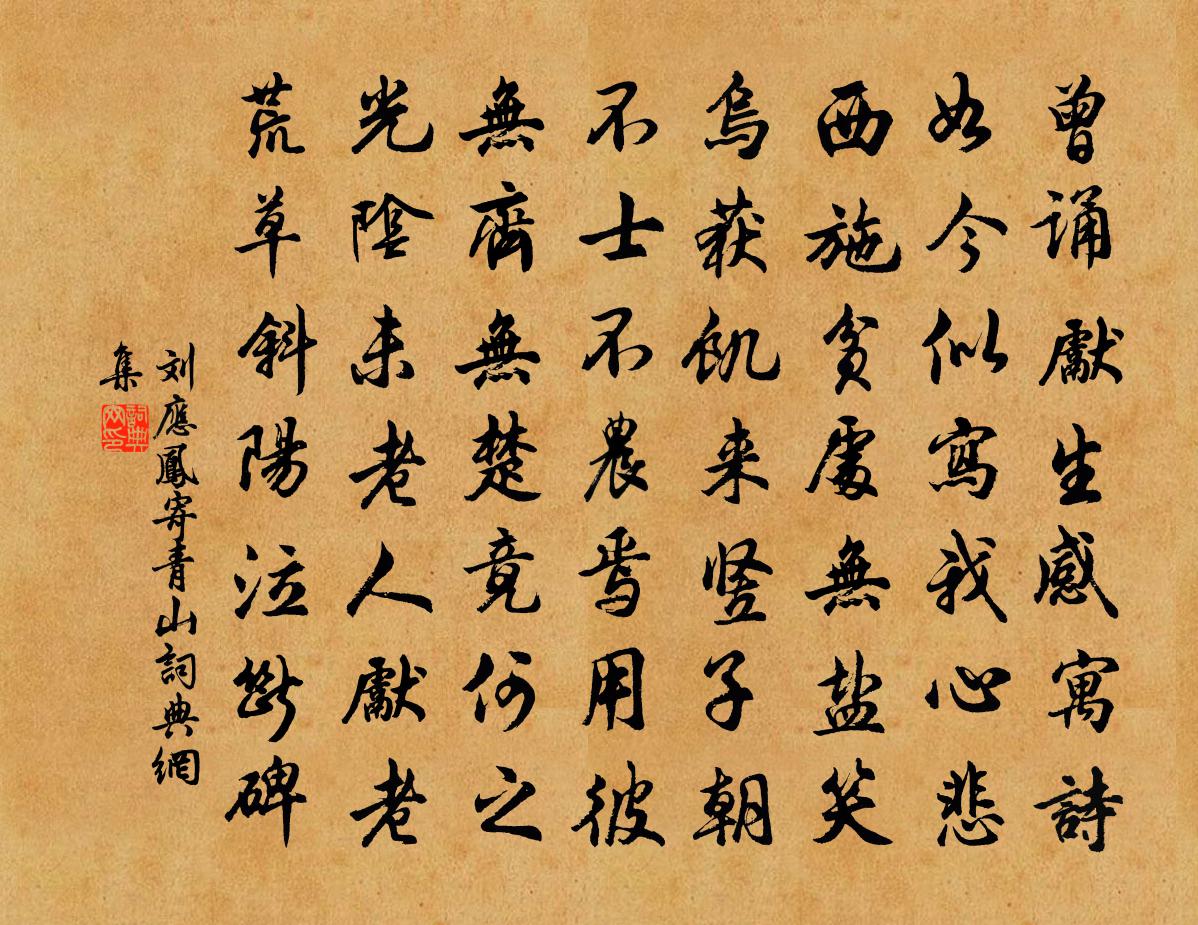 曾誦獻生感寓詩
如今似寫我心悲
西施貧處無盐笑
烏获飢来竖子朝
不士不農焉用彼
無齊無楚竟何之
光陰未老人獻老
荒草斜陽泣斷碑
刘應鳳寄青山詞典網
集
詞典網印